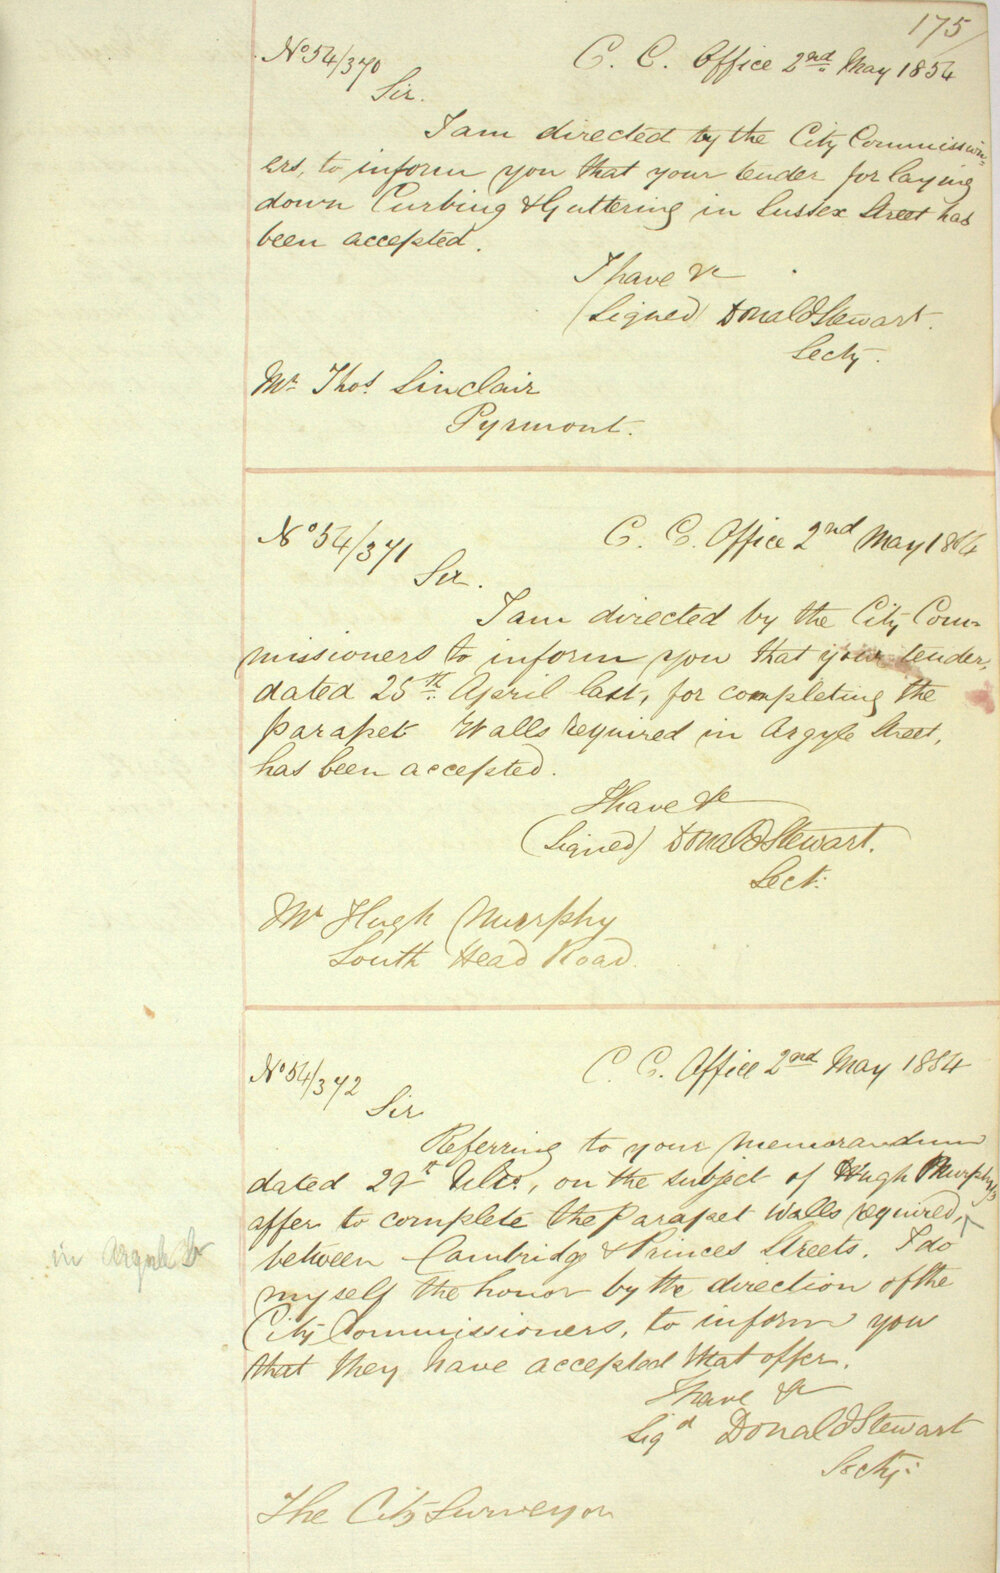 175
No 54/370 C. C. Office 2nd May 1854
Sir.
I am directed by the City Commission-
ers, to inform you that your tender for laying
down Curbing & Guttering in Sussex Street has
been accepted.
I have &c
(Signed) Donald Stewart.
Secty.
Mr Thos. Sinclair
Pyrmont.
No 54/371 C. C. Office 2nd May 1854
Sir.
I am directed by the City Com-
missioners to inform you that your tender,
dated 25th April last, for completing the
parapet Walls required in Argyle Street,
has been accepted.
I have &c
(Signed) Donald Stewart.
Sect:
Mr Hugh Murphy
South Head Road.
No 54/372 C. C. Office 2nd May 1854
Sir
Referring to your memorandum
dated 29th Ulto., on the subject of Hugh Murphy's
offer to complete the Parapet Walls required,
in Argyle St
between Cambridge & Princes Streets. I do
myself the honor by the direction of the
City Commissioners, to inform you
that they have accepted that offer.
I have &c
Sigd Donald Stewart
Secty:
The City Surveyor